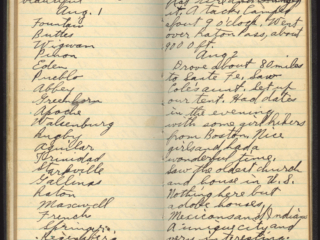 Aug. 1
Fountain
Buttes
Wigwam
Pinon
Eden
Pueblo
Abbey
Greenhorn
Apache
Walsenburg
Rugby
Aguilar
Trinidad
Starkville
Gallinas
Raton
Maxwell
French
Springer
about 9 o'clock. Went
over Raton Pass, about
900 ft.
Aug 2
Drove about 80 miles
to Santa Fe, Saw
Cole's aunt. Set up
our tent. Had dates
in the evening
with some girl hikers
from Boston. Nice
girls and had a
wonderful time,
saw the oldest church
and house in U.S.
Nothing here but
adobe houses,
Mexicans and Indians
A unique city and
very interesting.